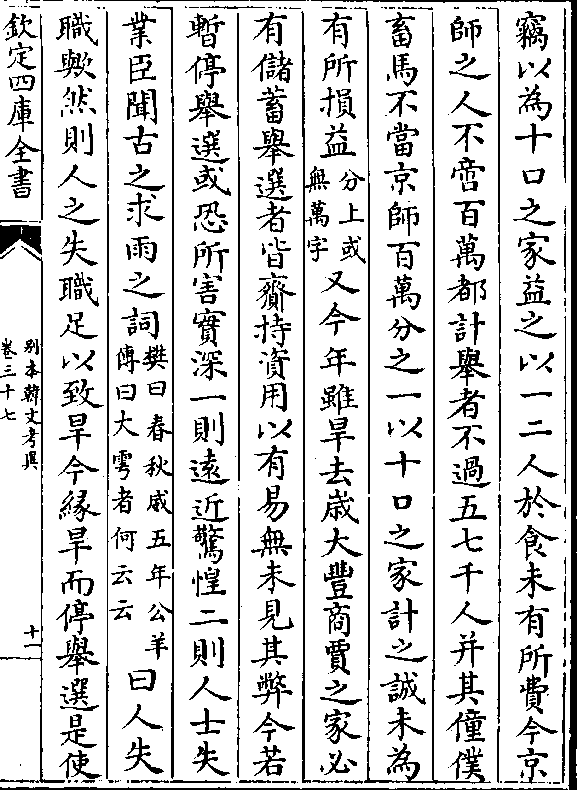 竊以為十口之家益之以一二人於食未有所費今京
師之人不啻百萬都計舉者不過五七千人并其僮僕
畜馬不當京師百萬分之一以十口之家計之誠未為
有所損益分上或無萬字又今年雖旱去歲大豐商賈之家必
有儲蓄舉選者皆齎持資用以有易無未見其弊今若
暫停舉選或恐所害實深一則遠近驚惶二則人士失
業臣聞古之求雨之詞樊曰春秋威五年公羊傳曰大雩者何云云曰人失
職歟然則人之失職足以致旱今緣旱而停舉選是使
欽定四庫全書
別本韓文考異
卷三十七
十一